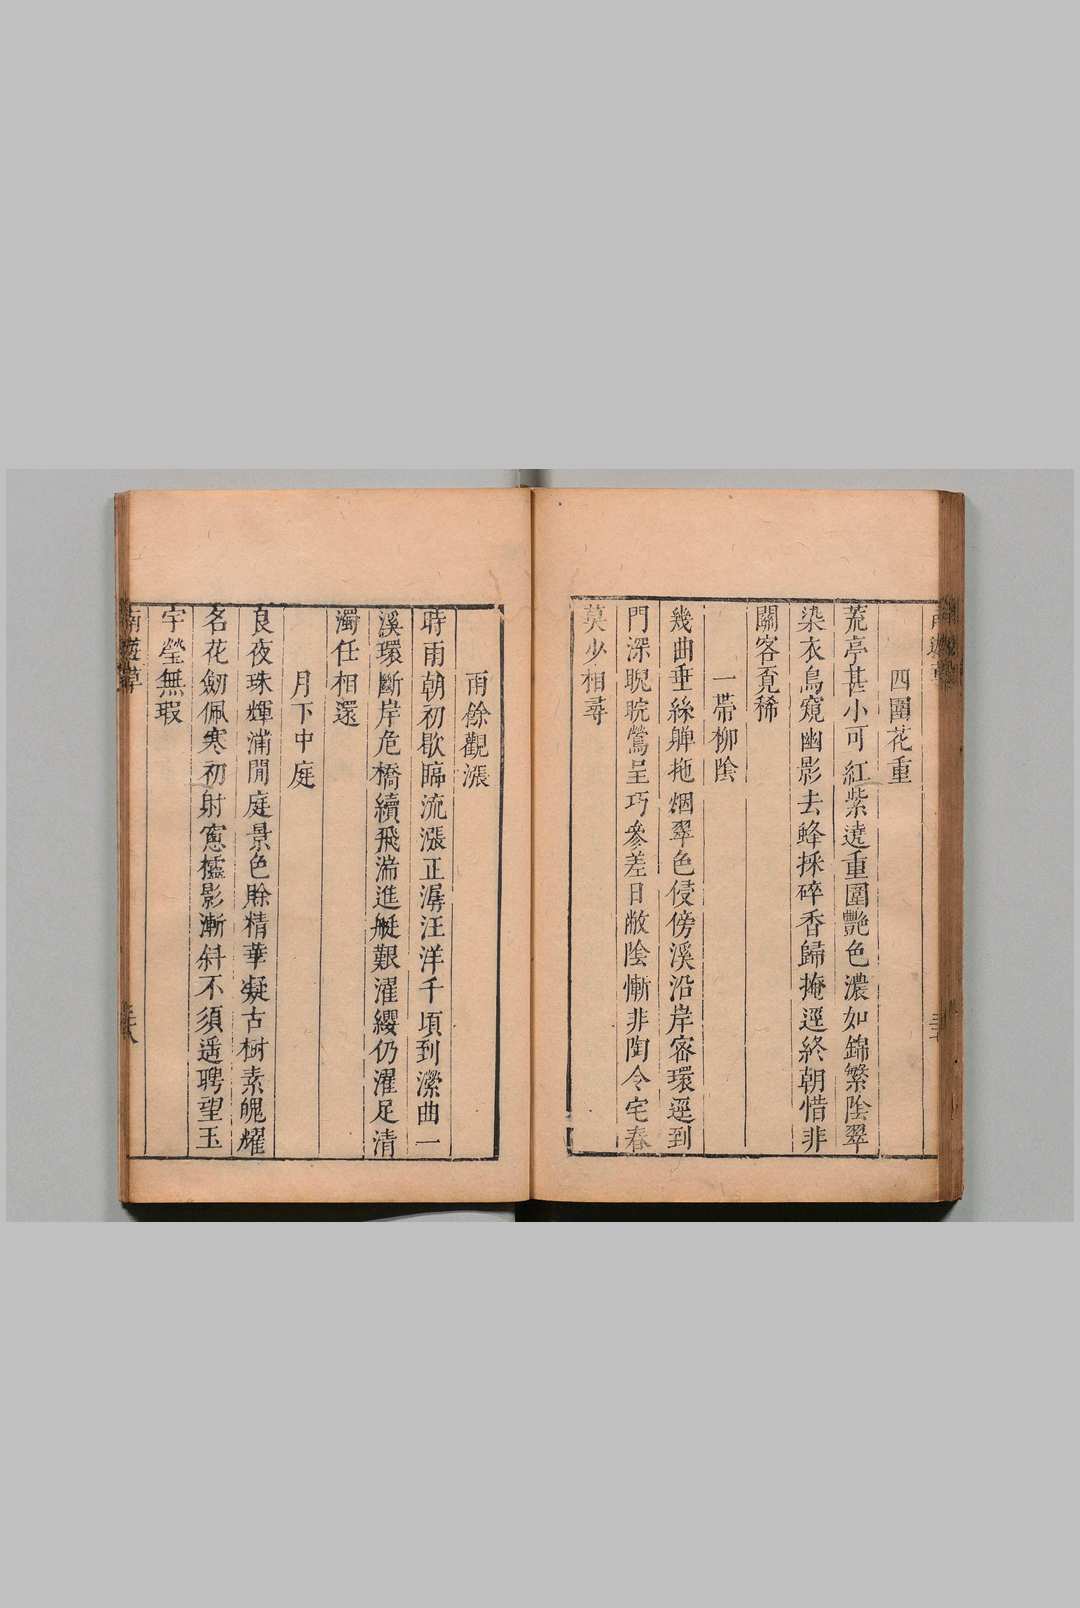 四圍花重
荒亭甚小可紅紫遶重圍艷色濃如錦繁陰翠
染衣鳥窺幽影去蜂採碎香歸掩逕終朝惜非
關客覔稀
一帶柳陰
幾曲垂絲嚲拖烟翠色侵傍溪沿岸密環逕到
門深睍睆鶯呈巧參差日敝陰慚非陶令宅春
莫少相尋
雨餘觀漲
時雨朝初歇臨流漲正潺汪洋千頃到瀠曲一
溪環斷岸危橋續飛湍進艇艱濯纓仍濯足清
濁任相還
月下中庭
良夜珠輝滿閒庭景色賒精華凝古樹素魄耀
名花劒佩寒初射窻櫺影漸斜不須遥聘望玉
宇瑩無瑕
南遊草
三十八